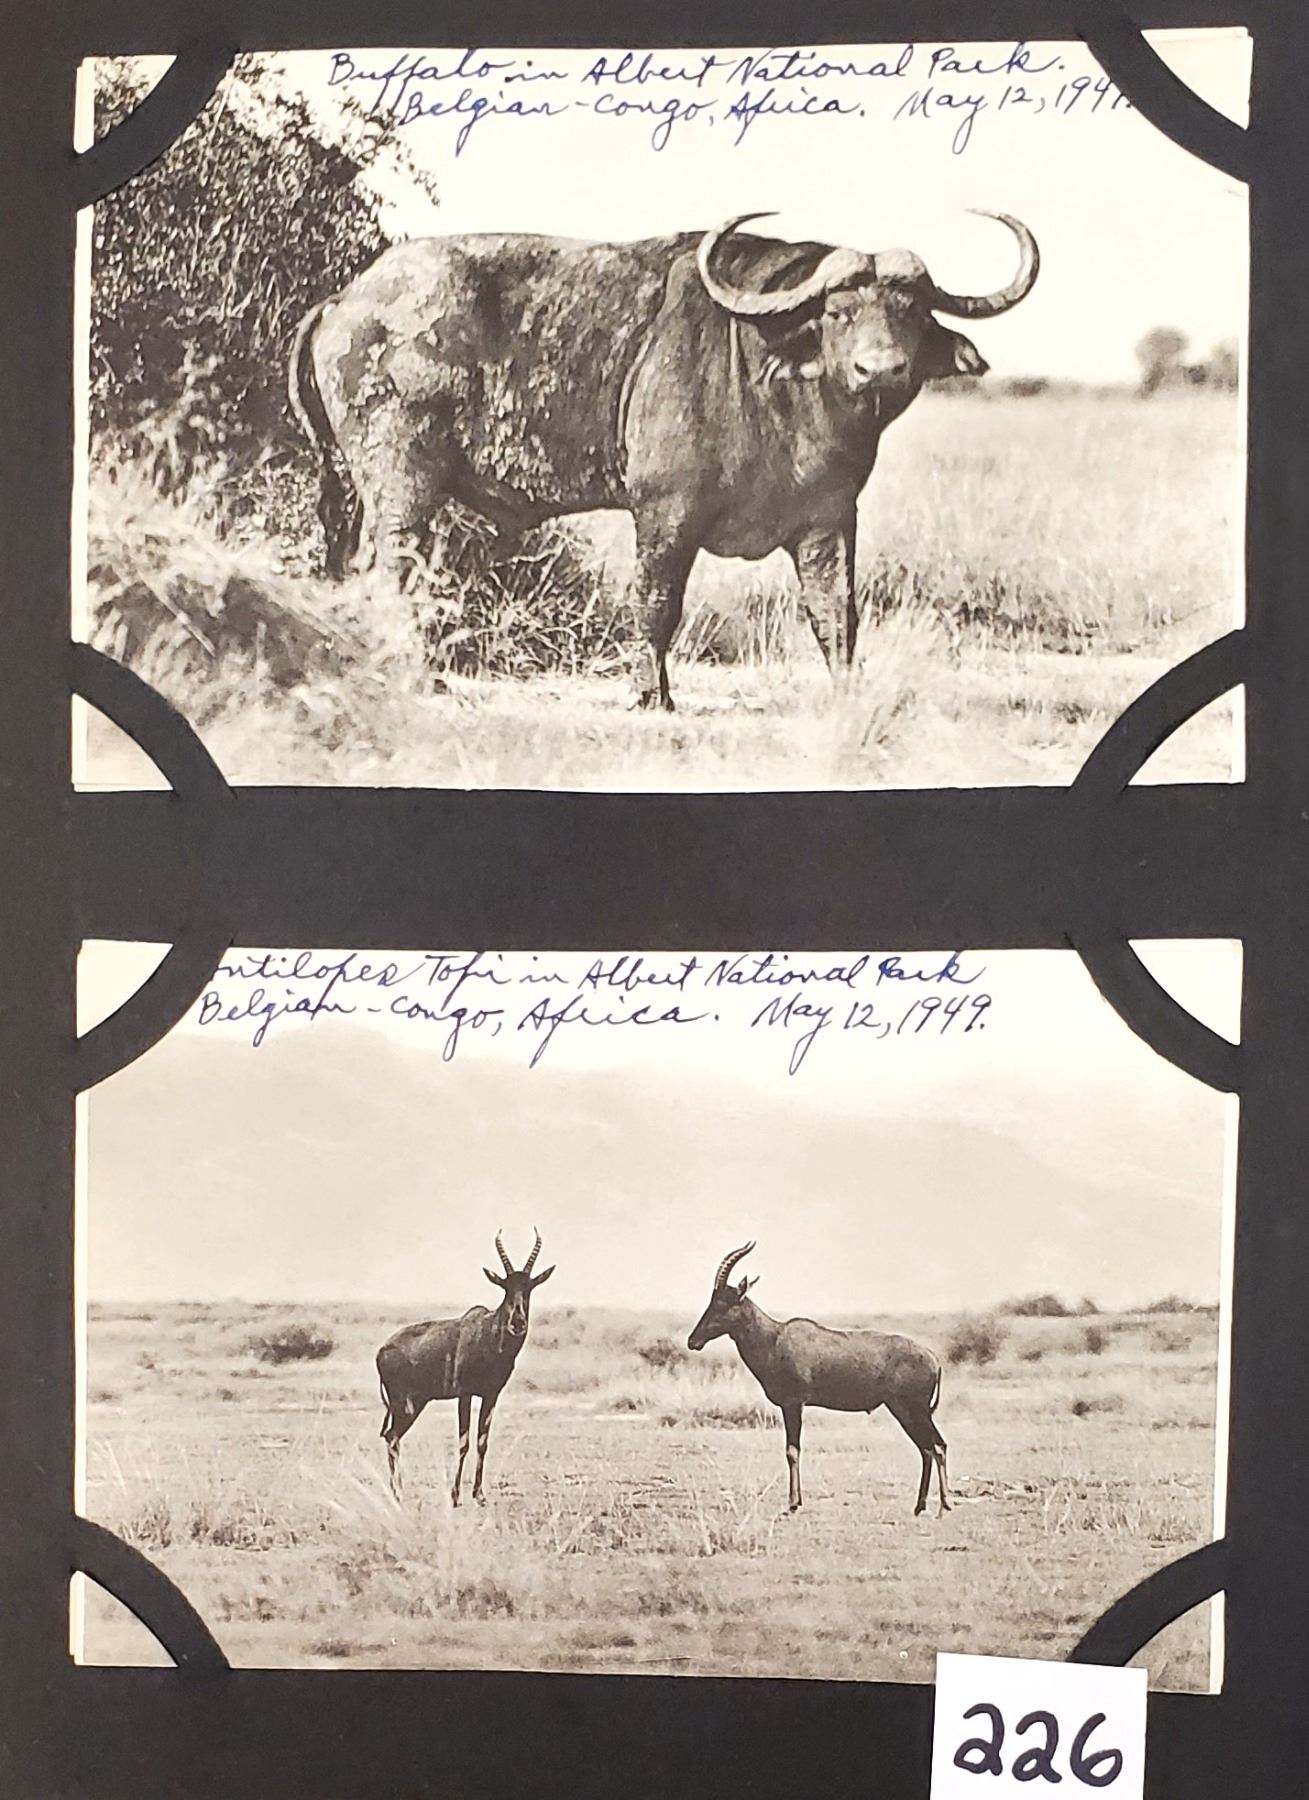 Buffalo in Albert National Park.
Belgian-Congo, Africa. May 12, 194
ntilopes Topi in Albert National Park
Belgian-Congo, Africa. May 12, 1949.
226